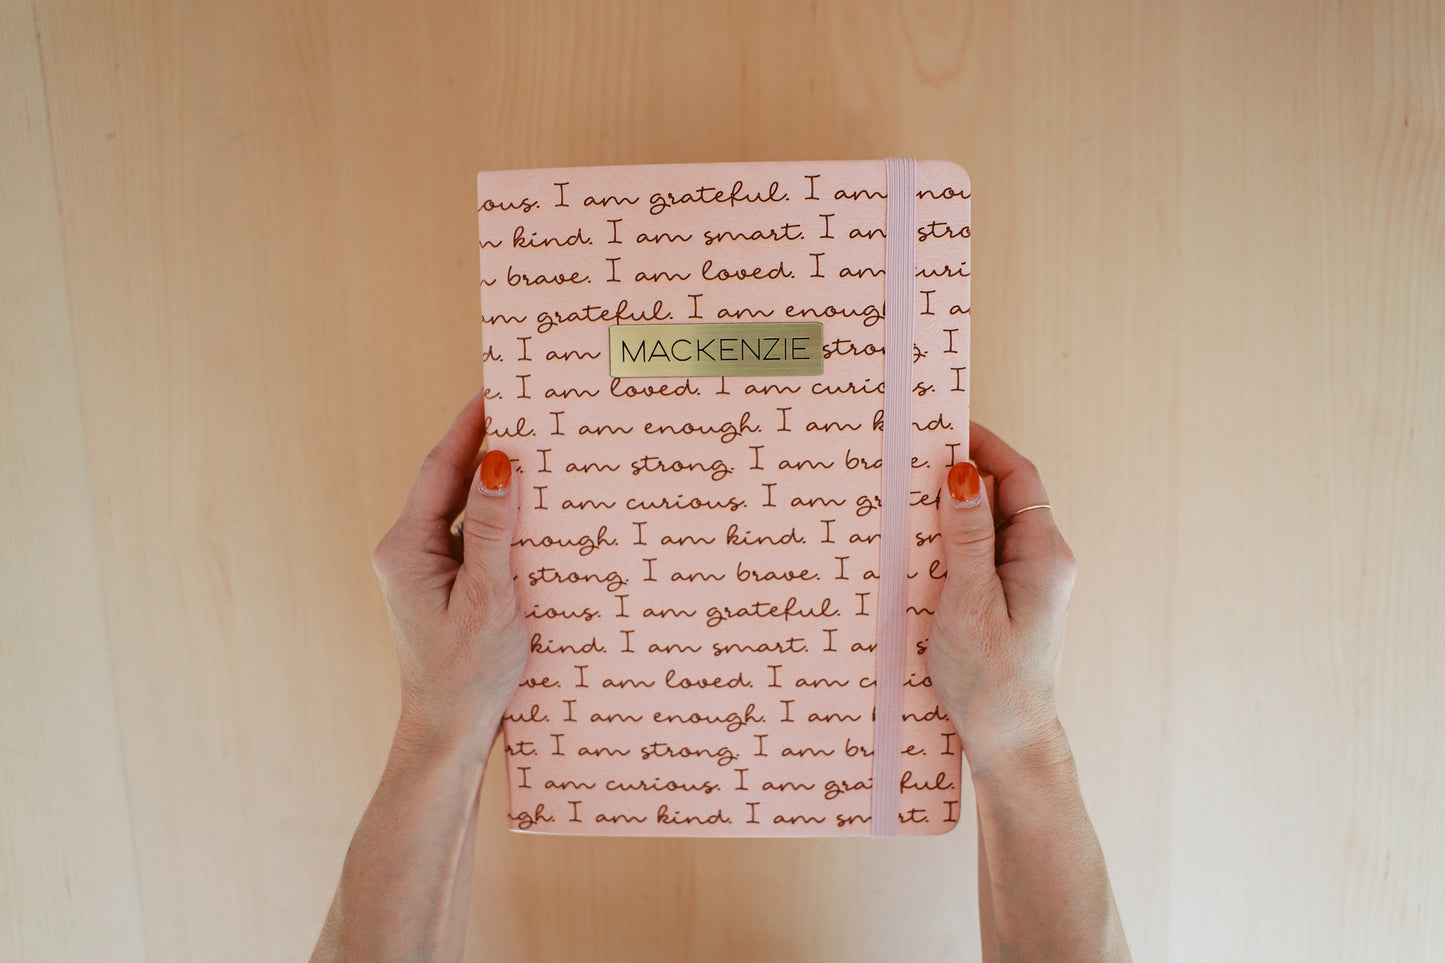 ous. I am grateful. I am enou
n kind. I am smart. I am stro
n brave. I am loved. I am curi
am grateful. I am enough I a
d. I am MACKENZIE strong. I
e. I am loved. I am curious. I
ful. I am enough. I am kind.
t. I am strong. I am brave. I
. I am curious. I am grate
nough. I am kind. I am sm
strong. I am brave. I a lo
ious. I am grateful. I m
kind. I am smart. I am st
ve. I am loved. I am curio
ul. I am enough. I am kind.
rt. I am strong. I am brave. I
I am curious. I am grateful.
ugh. I am kind. I am smart. I